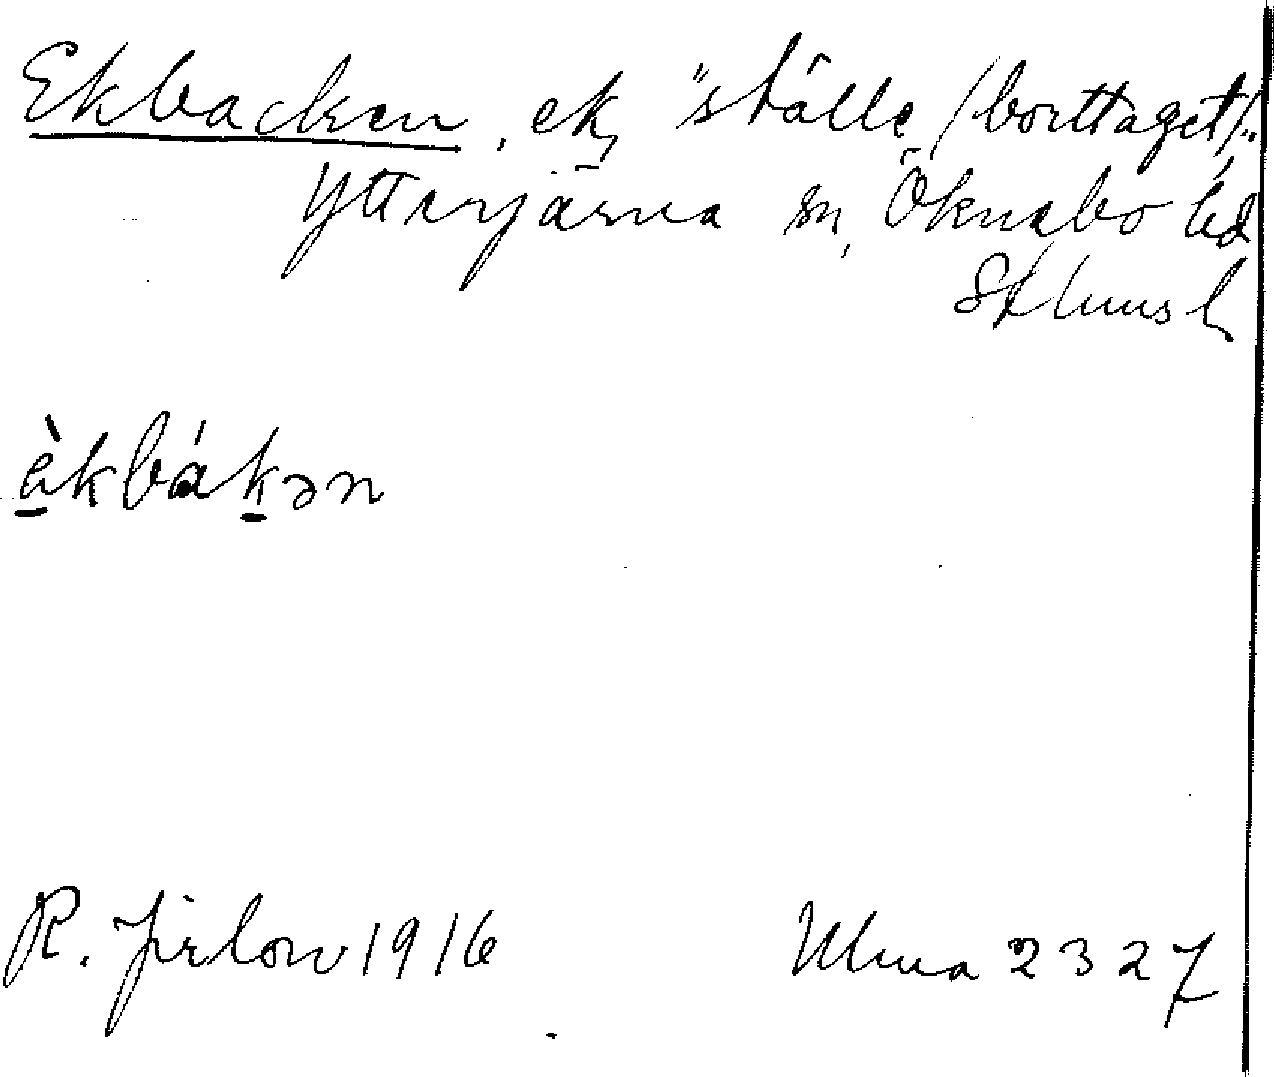 Ekbacken, ek, "ställe (borttaget)".
Ytterjärna sn, Öknebo hd
Sthms l
èkbákən
R. Jirlow 1916
Ulma 2327